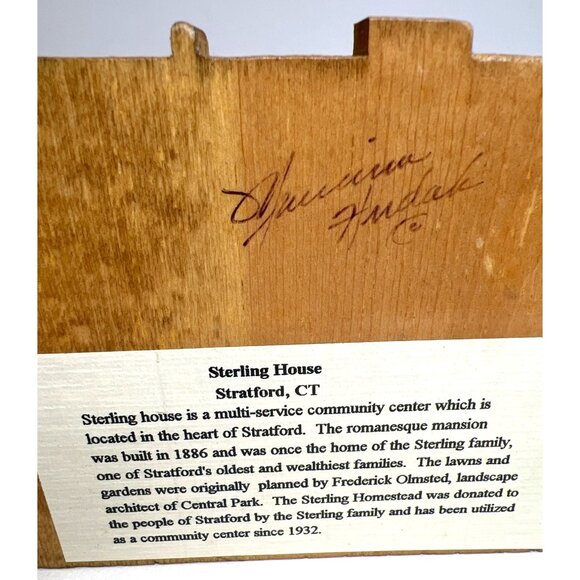 Hudak
©
Sterling House
Stratford, CT
Sterling house is a multi-service community center which is
located in the heart of Stratford. The romanesque mansion
was built in 1886 and was once the home of the Sterling family,
one of Stratford's oldest and wealthiest families. The lawns and
gardens were originally planned by Frederick Olmsted, landscape
architect of Central Park. The Sterling Homestead was donated to
the people of Stratford by the Sterling family and has been utilized
as a community center since 1932.